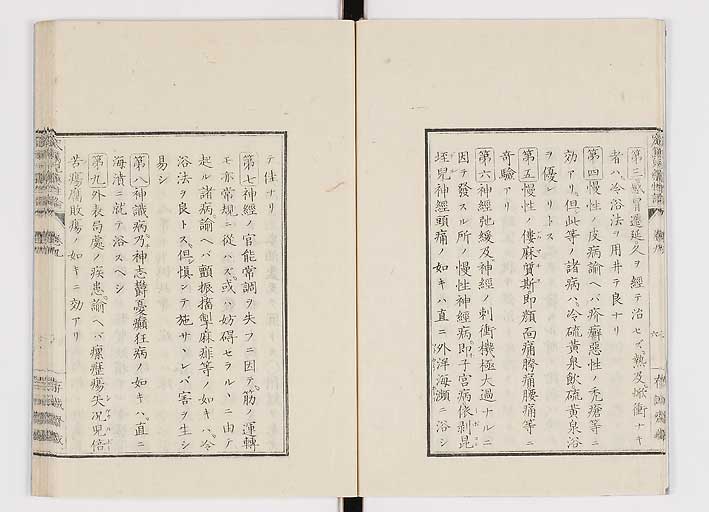 第三感冒遷延久ヲ經テ治セズ熱及焮衝ナキ
者ハ冷浴法ヲ用井テ良ナリ
第四慢性ノ皮病諭ヘバ疥癬惡性ノ禿瘡等ニ
効アリ但此等ノ諸病ハ冷硫黃泉飲硫黃泉浴
ヲ優レリトス
第五慢性ノ僂麻質斯即顏面痛胯痛腰痛等ニ
奇驗アリ
第六神經弛緩及神經ノ刺衝機極大過ナルニ
因テ發スル所ノ慢性神經病即子宮病依剥昆
垤兒神經頭痛ノ如キハ直ニ外洋海瀕ニ浴シ
テ佳ナリ
第七神經ノ官能常調ヲ失フニ因テ筋ノ運轉
モ亦常規ニ從ハズ或ハ妨碍セラルヽニ由テ
起ル諸病諭ヘバ顫振搐掣麻痱等ノ如キハ冷
浴法ヲ良トス但慎シテ施サヾレバ害ヲ生シ
易シ
第八神識病乃神志欝憂癲狂病ノ如キハ直ニ
海濱ニ就テ浴スヘシ
第九外表局處ノ疾患諭ヘバ瘰癧瘍失况畀倍
苦瘍腐敗瘍ノ如キニ効アリ